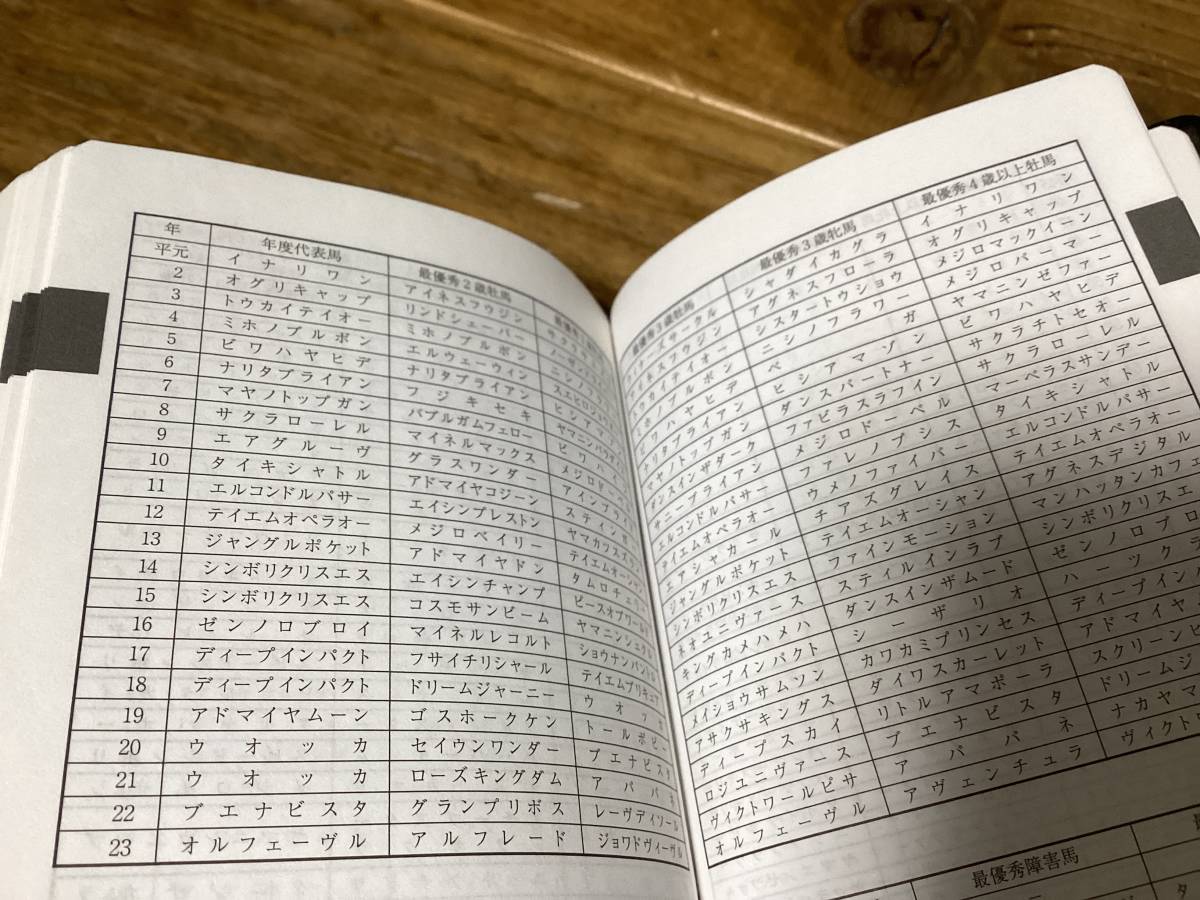 年 年度代表馬 最優秀2歳牡馬
平元 イナリワン アイネスフウジン
2 オグリキャップ リンドシェーバー
3 トウカイテイオー ミホノブルボン
4 ミホノブルボン エルウェーウィン
5 ビワハヤヒデ ナリタブライアン
6 ナリタブライアン フジキセキ
7 マヤノトップガン バブルガムフェロー
8 サクラローレル マイネルマックス
9 エアグルーヴ グラスワンダー
10 タイキシャトル アドマイヤコジーン
11 エルコンドルパサー エイシンプレストン
12 テイエムオペラオー メジロベイリー
13 ジャングルポケット アドマイヤドン タムロチェリー
14 シンボリクリスエス エイシンチャンプ ピースオブワールド
15 シンボリクリスエス コスモサンビーム ヤマニンシュクル
16 ゼンノロブロイ マイネルレコルト ショウナンパントル
17 ディープインパクト フサイチリシャール テイエムプリキュア
18 ディープインパクト ドリームジャーニー ウオッカ
19 アドマイヤムーン ゴスホークケン トールポピー
20 ウオッカ セイウンワンダー ブエナビスタ
21 ウオッカ ローズキングダム アパパネ
22 ブエナビスタ グランプリボス レーヴディソール
23 オルフェーヴル アルフレード ジョワドヴィーヴル
最優秀3歳牡馬 最優秀3歳牝馬 最優秀4歳以上牡馬
ウィナーズサークル シャダイカグラ イナリワン
アイネスフウジン アグネスフローラ オグリキャップ
トウカイテイオー シスタートウショウ メジロマックイーン
ミホノブルボン ニシノフラワー メジロパーマー
ビワハヤヒデ ベガ ヤマニンゼファー
ナリタブライアン ヒシアマゾン ビワハヤヒデ
マヤノトップガン ダンスパートナー サクラチトセオー
ダンスインザダーク ファビラスラフイン サクラローレル
サニーブライアン メジロドーベル マーベラスサンデー
エルコンドルパサー ファレノプシス タイキシャトル
テイエムオペラオー ウメノファイバー エルコンドルパサー
エアシャカール チアズグレイス テイエムオペラオー
ジャングルポケット テイエムオーシャン アグネスデジタル
シンボリクリスエス ファインモーション マンハッタンカフェ
ネオユニヴァース スティルインラブ シンボリクリスエ
キングカメハメハ ダンスインザムード ゼンノロブロ
ディープインパクト シーザリオ ハーツクラ
メイショウサムソン カワカミプリンセス ディープインパ
アサクサキングス ダイワスカーレット アドマイヤ
ディープスカイ リトルアマポーラ スクリーンヒ
ロジユニヴァース ブエナビスタ ドリームジ
ヴィクトワールピサ アパパネ ナカヤマ
オルフェーヴル アヴェンチュラ ヴィクト
最優秀障害馬